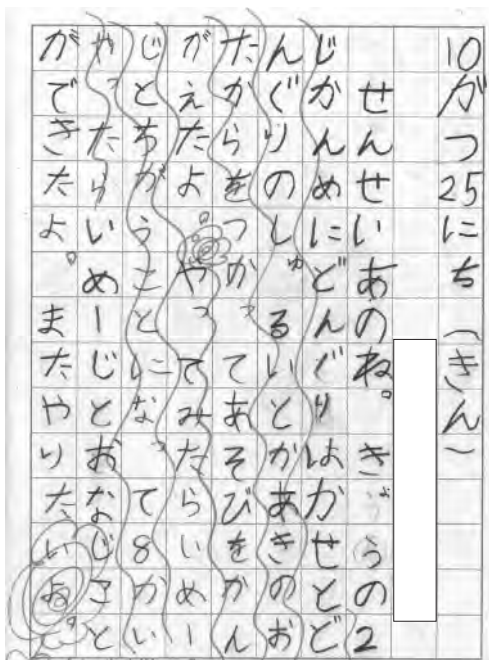 10がつ25にち（きん）
せんせいあのね。きょうの2
じかんめにどんぐりはかせとど
んぐりのしゅるいとかあきのお
たからをつかってあそびをかん
がえたよ。やってみたらいめー
じとちがうことになって8かい
やったらいめーじとおなじこと
ができたよ。またやりたいな。